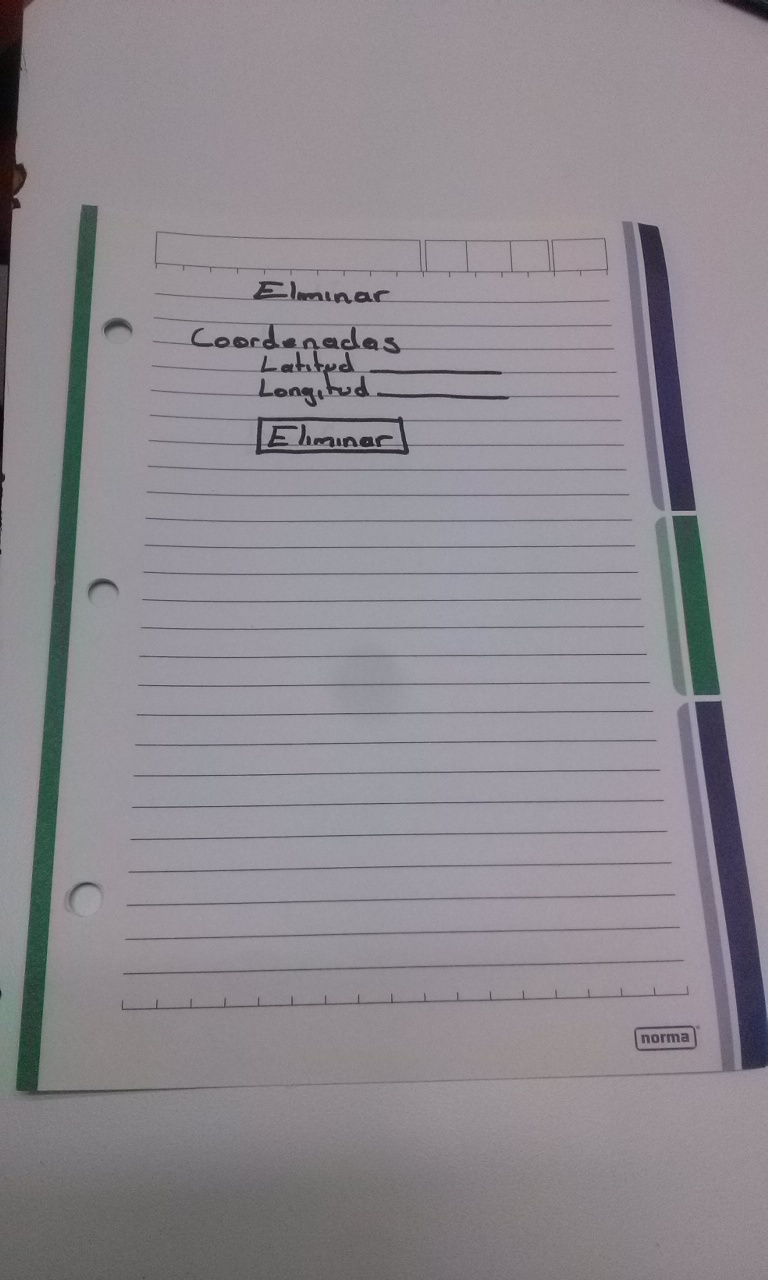 Eliminar
Coordenadas
Latitud
Longitud
Eliminar
norma